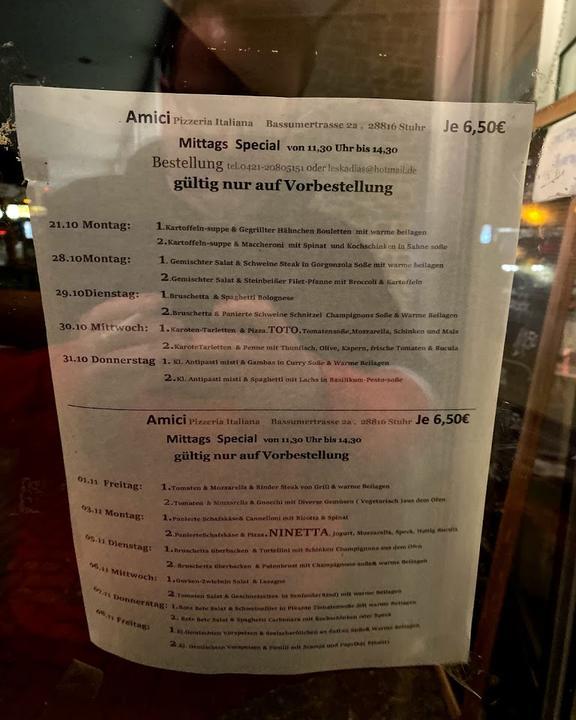 Amici Pizzeria Italiana Bassumertrasse 2a , 28816 Stuhr Je 6,50€
Mittags Special von 11,30 Uhr bis 14,30
Bestellung tel.0421-20805151 oder leskadias@hotmail.de
gültig nur auf Vorbestellung
21.10 Montag: 1.Kartoffeln-suppe & Gegrillter Hähnchen Bouletten mit warme beilagen
2.Kartoffeln-suppe & Maccheroni mit Spinat und Kochschinken in Sahne soße
28.10Montag: 1. Gemischter Salat & Schweine Steak in Gorgonzola Soße mit warme beilagen
2.Gemischter Salat & Steinbeißer Filet-Pfanne mit Broccoli & Kartoffeln
29.10Dienstag: 1.Bruschetta & Spaghetti Bolognese
2.Bruschetta & Panierte Schweine Schnitzel Champignons Soße & Warme Beilagen
30.10 Mittwoch: 1.Karoten-Tarletten & Pizza.TOTO.Tomatensoße,Mozzarella, Schinken und Mais
2.KaroteTarletten & Penne mit Thunfisch, Olive, Kapern, frische Tomaten & Rucula
31.10 Donnerstag 1. Kl. Antipasti misti & Gambas in Curry Soße & Warme Beilagen
2.Kl. Antipasti misti & Spaghetti mit Lachs in Basilikum-Pesto-soße
Amici Pizzeria Italiana Bassumertrasse 2a , 28816 Stuhr Je 6,50€
Mittags Special von 11,30 Uhr bis 14,30
gültig nur auf Vorbestellung
01.11 Freitag: 1.Tomaten & Mozzarella & Rinder Steak von Grill & warme beilagen
2.Tomaten & Mozzarella & Gnocchi mit Diverse Gemüsen ( Vegetarisch )aus dem Ofen
03.11 Montag: 1.Panierte Schafskäse& Cannelloni mit Ricotta & Spinat
2.PanierteSchafskäse & Pizza.NINETTA. Jogurt, Mozzarella, Speck, Honig Rucula
05.11 Dienstag: 1.Bruschetta überbacken & Tortellini mit Schinken Champignons aus dem Ofen
2. Bruschetta überbacken & Putenbrust mit Champignons-soße& warme Beilagen
06.11 Mittwoch: 1.Gurken-Zwiebeln Salat & Lasagne
2.Tomaten Salat & Geschnetzeltes in (Rind) mit warme Beilagen
07.11 Donnerstag: 1.Rote Bete Salat & Schweinefilet in Pikante Tomatensoße mit warme Beilagen
2. Rote Bete Salat & Spaghetti Carbonara mit Kochschinken oder Speck
08.11 Freitag: 1.Kl.Gemischten Vorspeisen & Soße& Warme Beilagen
2.Kl. Gemischten Vorspeisen & Fusilli mit Scampi und